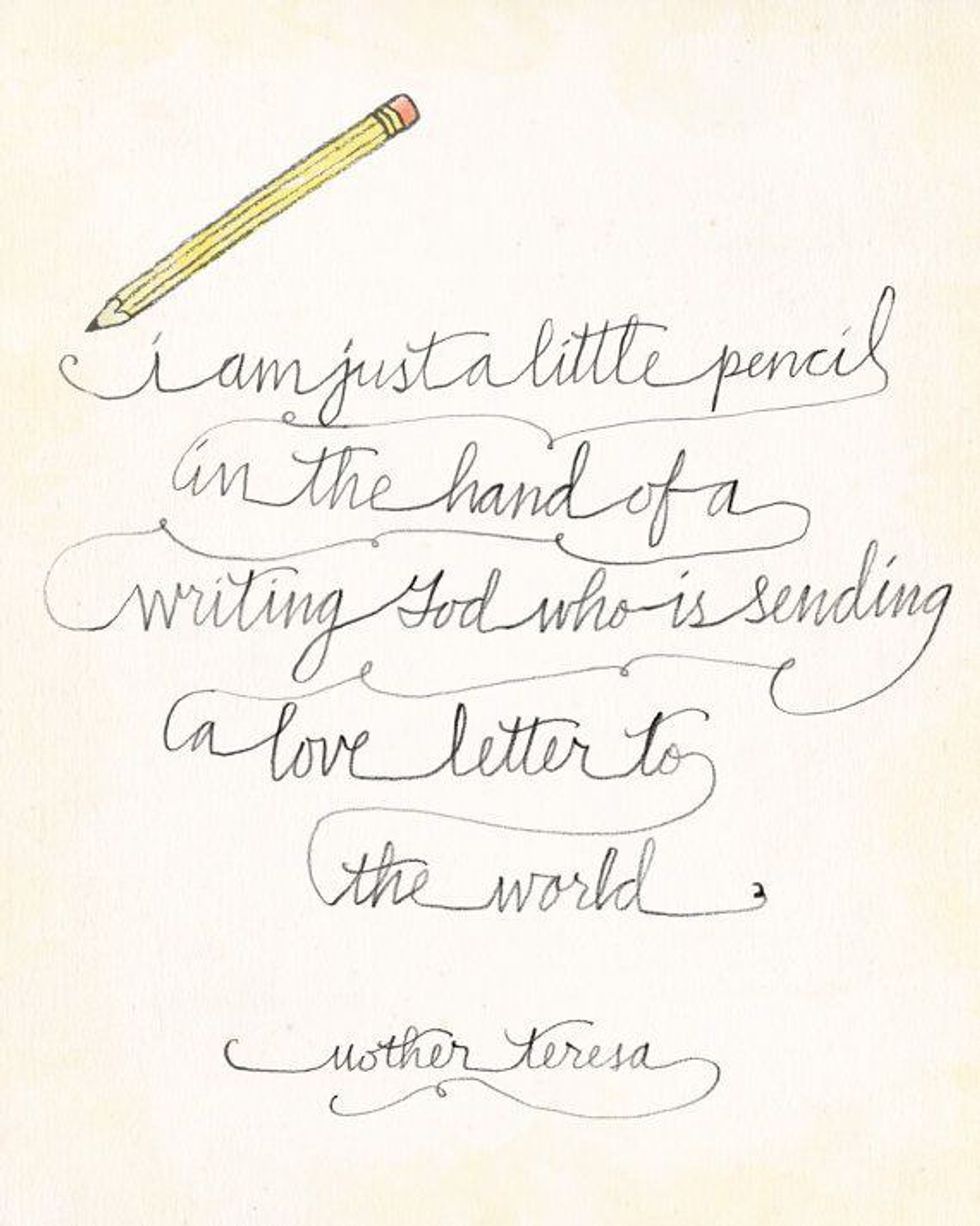 i am just a little pencil
in the hand of a
writing God who is sending
a love letter to
the world
mother teresa